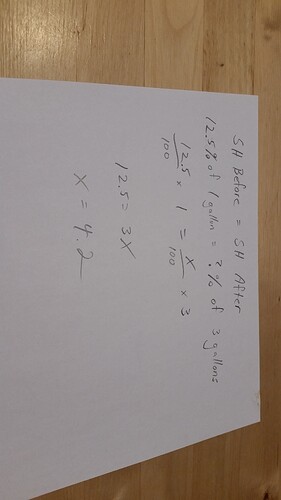 SH Before = SH After
12.5% of 1 gallon = ?% of 3 gallons
12.5/100 × 1 = x/100 × 3
12.5 = 3x
x = 4.2